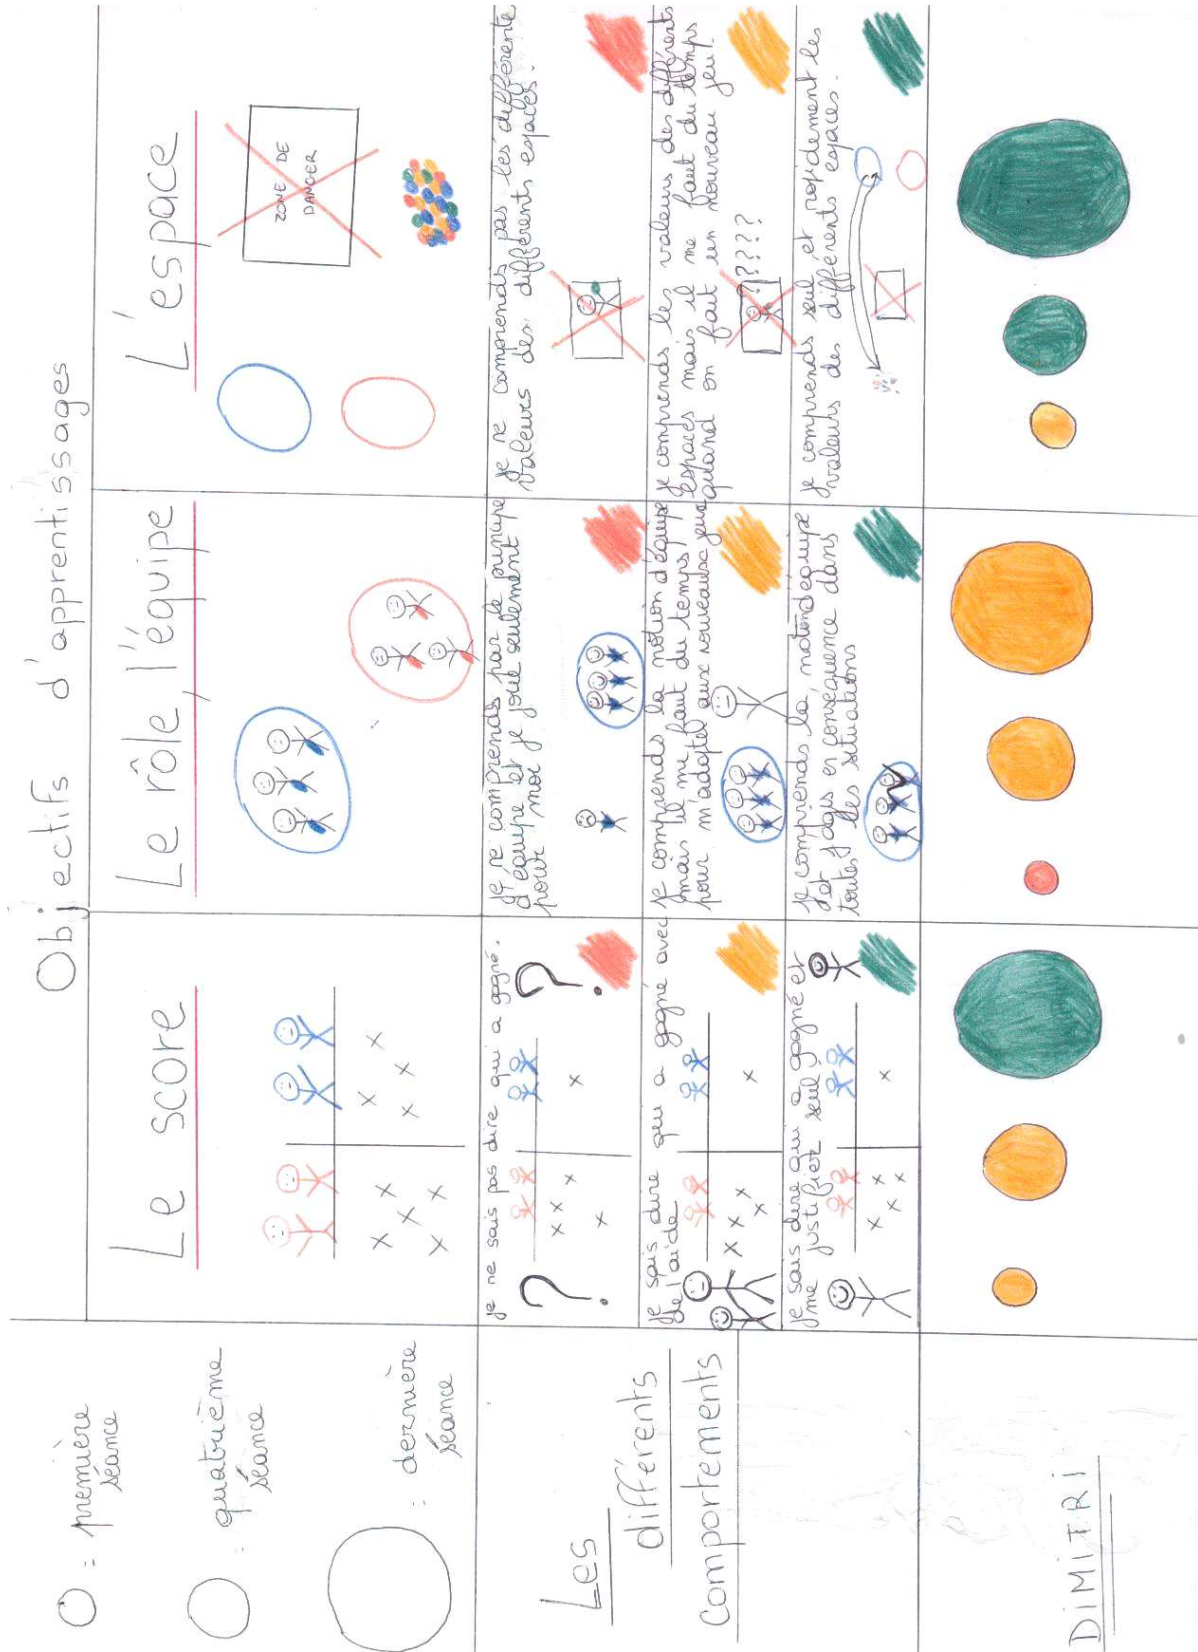 Objectifs d'apprentissages
O = première
séance
: quatrième
séance
: dernière
séance
Le score
Le rôle, l'équipe
L'espace
ZONE DE
DANGER
Les
différents
comportements
je ne sais pas dire qui a gagné.
? ?
je ne comprends pas le principe
d'équipe et je joue seulement
pour moi
je ne comprends pas les différente
valeurs des différents espaces.
je sais dire qui a gagné avec
de l'aide
je comprends la notion d'équipe
mais il me faut du temps
pour m'adapter aux nouveaux jeux
je comprends les valeurs des différents
espaces mais il me faut du temps
quand on fait un nouveau jeu.
?????
je sais dire qui a gagné et
me justifier seul
je comprends la notion d'équipe
et j'agis en conséquence dans
toutes les situations
je comprends seul et rapidement les
valeurs des différents espaces.
DiMiTRi